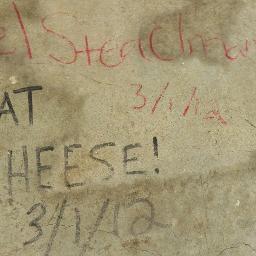 el Steelman
3/1/12
AT
HEESE!
3/1/12